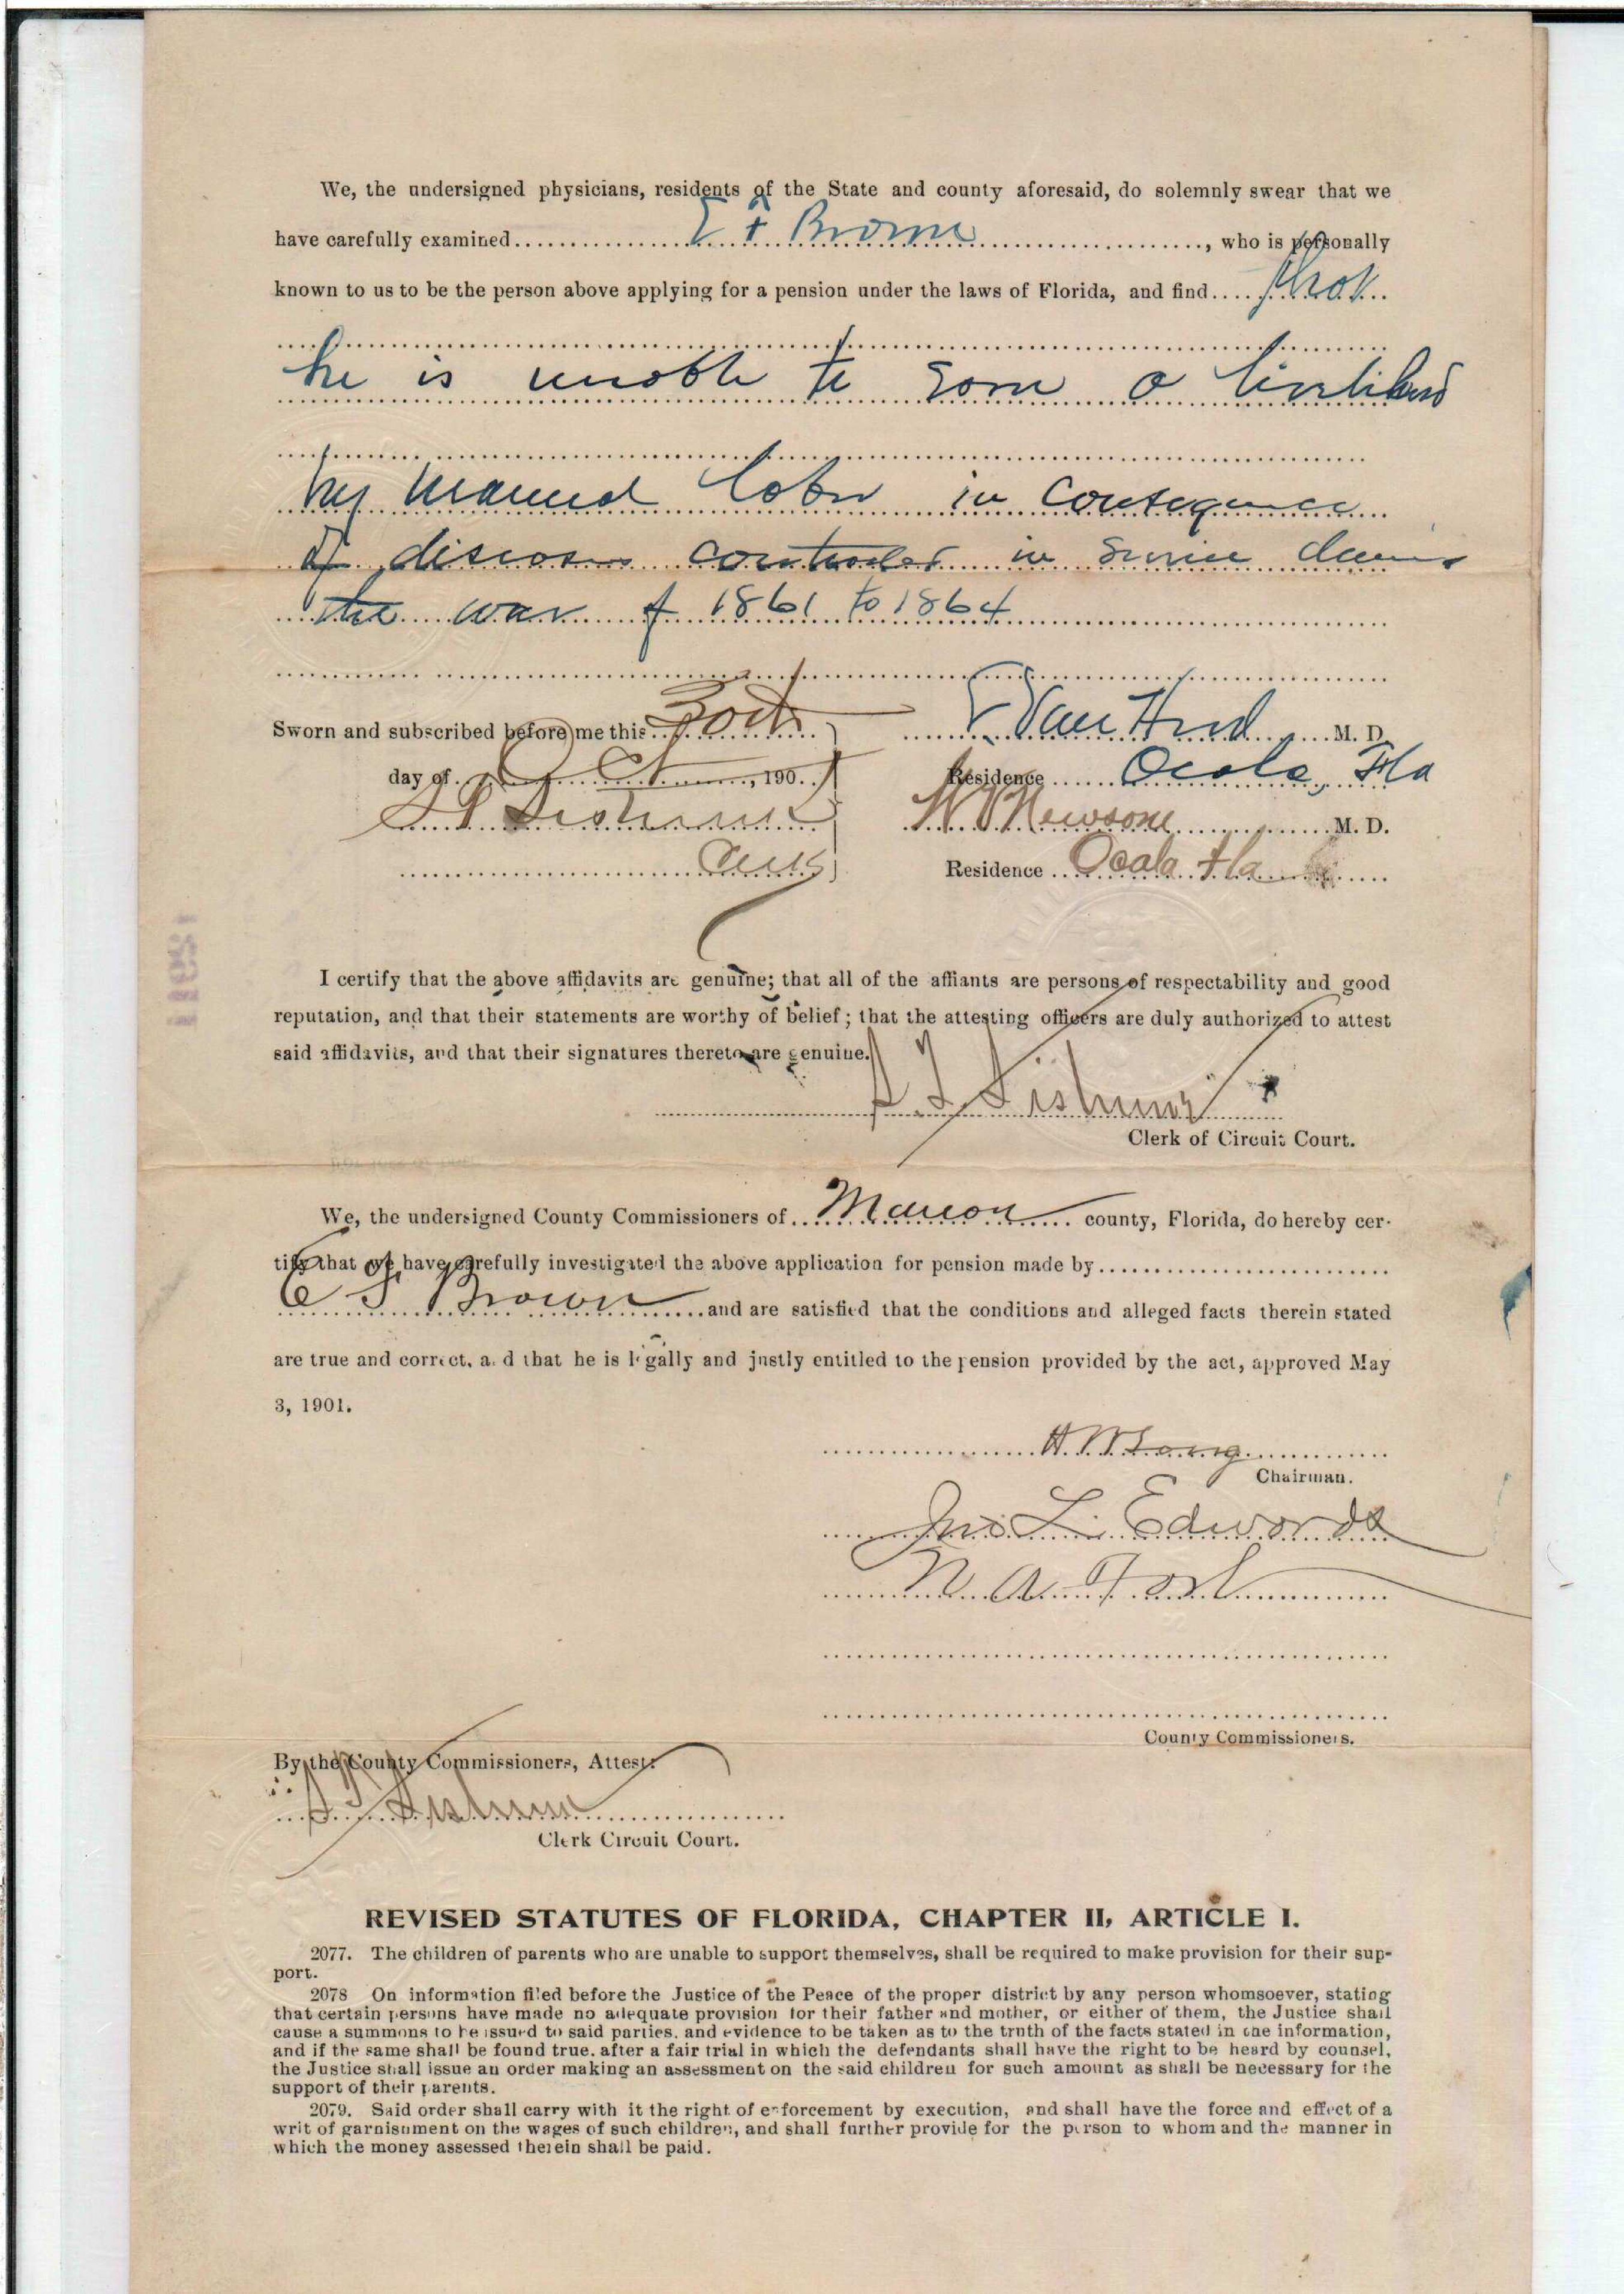 We, the undersigned physicians, residents of the State and county aforesaid, do solemnly swear that we
have carefully examined E F Brown, who is personally
known to us to be the person above applying for a pension under the laws of Florida, and find that
he is unable to earn a livelihood
by manual labor in consequence
of diseases contracted in service during
the war of 1861 to 1864
Sworn and subscribed before me this 30th
E Van Hood M. D.
day of Oct, 190
Residence Ocala, Fla
Newsome M. D.
Clerk
Residence Ocala Fla
I certify that the above affidavits are genuine; that all of the affiants are persons of respectability and good
reputation, and that their statements are worthy of belief; that the attesting officers are duly authorized to attest
said affidavits, and that their signatures thereto are genuine.
Clerk of Circuit Court.
We, the undersigned County Commissioners of Marion county, Florida, do hereby cer-
tify that we have carefully investigated the above application for pension made by
E F Brown and are satisfied that the conditions and alleged facts therein stated
are true and correct, and that he is legally and justly entitled to the pension provided by the act, approved May
3, 1901.
H W Long
Chairman.
Jno L. Edwards
N A Fort
County Commissioners.
By the County Commissioners, Attest:
Clerk Circuit Court.
REVISED STATUTES OF FLORIDA, CHAPTER II, ARTICLE I.
2077. The children of parents who are unable to support themselves, shall be required to make provision for their sup-
port.
2078 On information filed before the Justice of the Peace of the proper district by any person whomsoever, stating
that certain persons have made no adequate provision for their father and mother, or either of them, the Justice shall
cause a summons to be issued to said parties, and evidence to be taken as to the truth of the facts stated in the information,
and if the same shall be found true, after a fair trial in which the defendants shall have the right to be heard by counsel,
the Justice shall issue an order making an assessment on the said children for such amount as shall be necessary for the
support of their parents.
2079. Said order shall carry with it the right of enforcement by execution, and shall have the force and effect of a
writ of garnishment on the wages of such children, and shall further provide for the person to whom and the manner in
which the money assessed therein shall be paid.